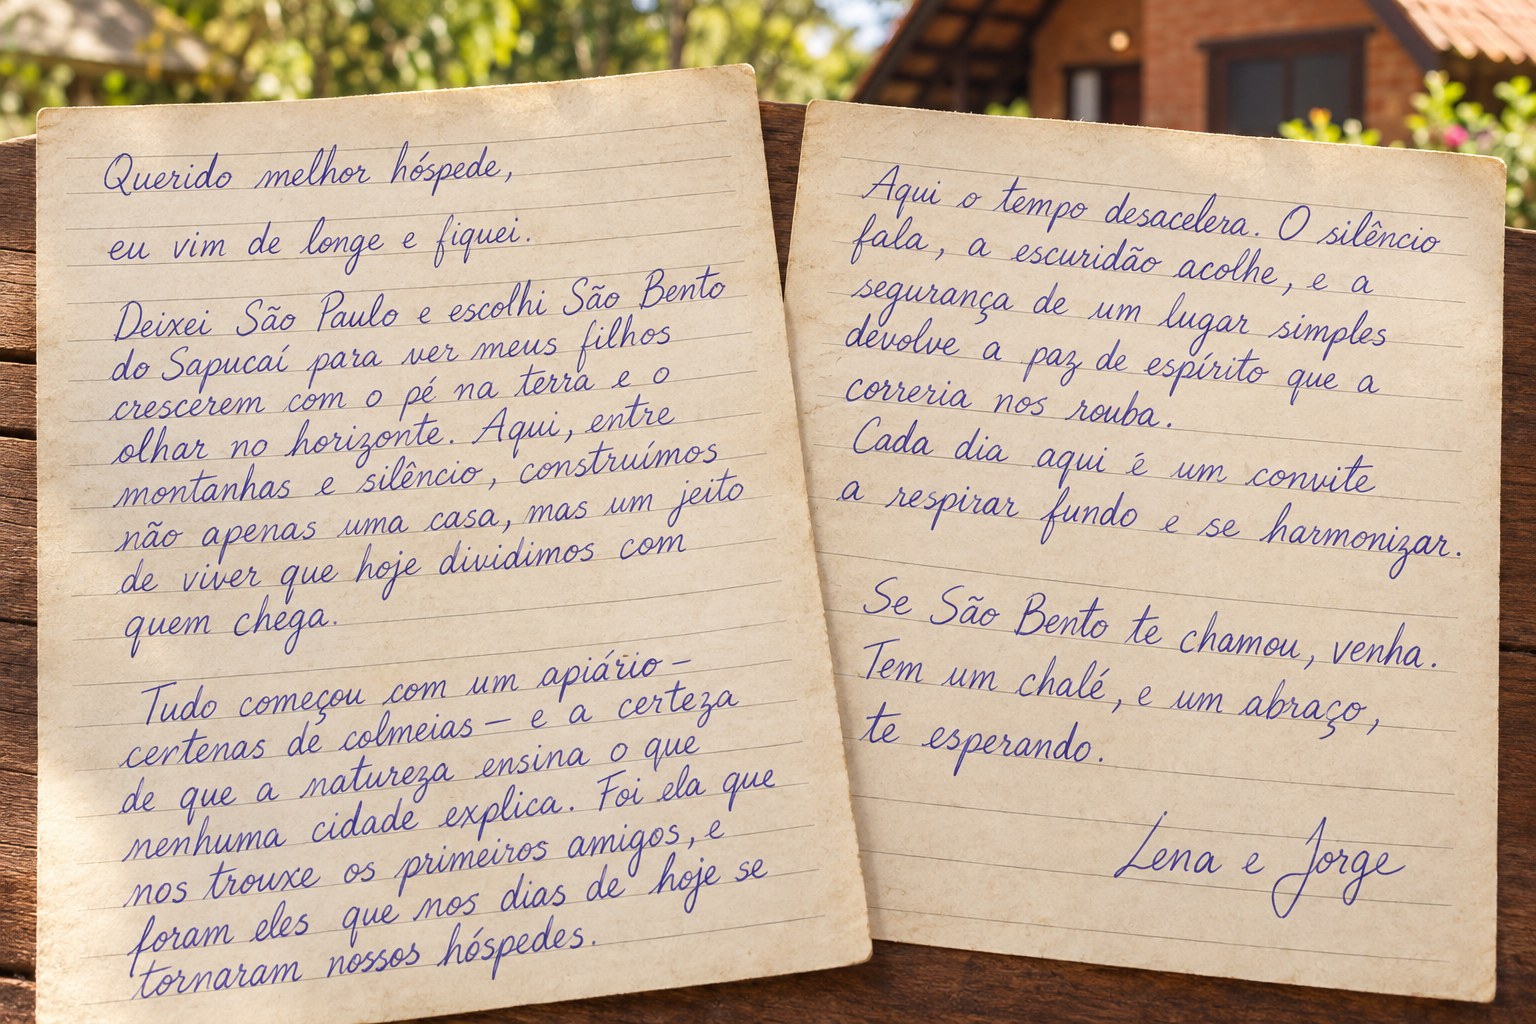 Querido melhor hóspede,
eu vim de longe e fiquei.
Deixei São Paulo e escolhi São Bento
do Sapucaí para ver meus filhos
crescerem com o pé na terra e o
olhar no horizonte. Aqui, entre
montanhas e silêncio, construímos
não apenas uma casa, mas um jeito
de viver que hoje dividimos com
quem chega.
Tudo começou com um apiário –
certenas de colmeias – e a certeza
de que a natureza ensina o que
nenhuma cidade explica. Foi ela que
nos trouxe os primeiros amigos, e
foram eles que nos dias de hoje se
tornaram nossos hóspedes.
Aqui o tempo desacelera. O silêncio
fala, a escuridão acolhe, e a
segurança de um lugar simples
devolve a paz de espírito que a
correria nos rouba.
Cada dia aqui é um convite
a respirar fundo e se harmonizar.
Se São Bento te chamou, venha.
Tem um chalé, e um abraço,
te esperando.
Lena e Jorge